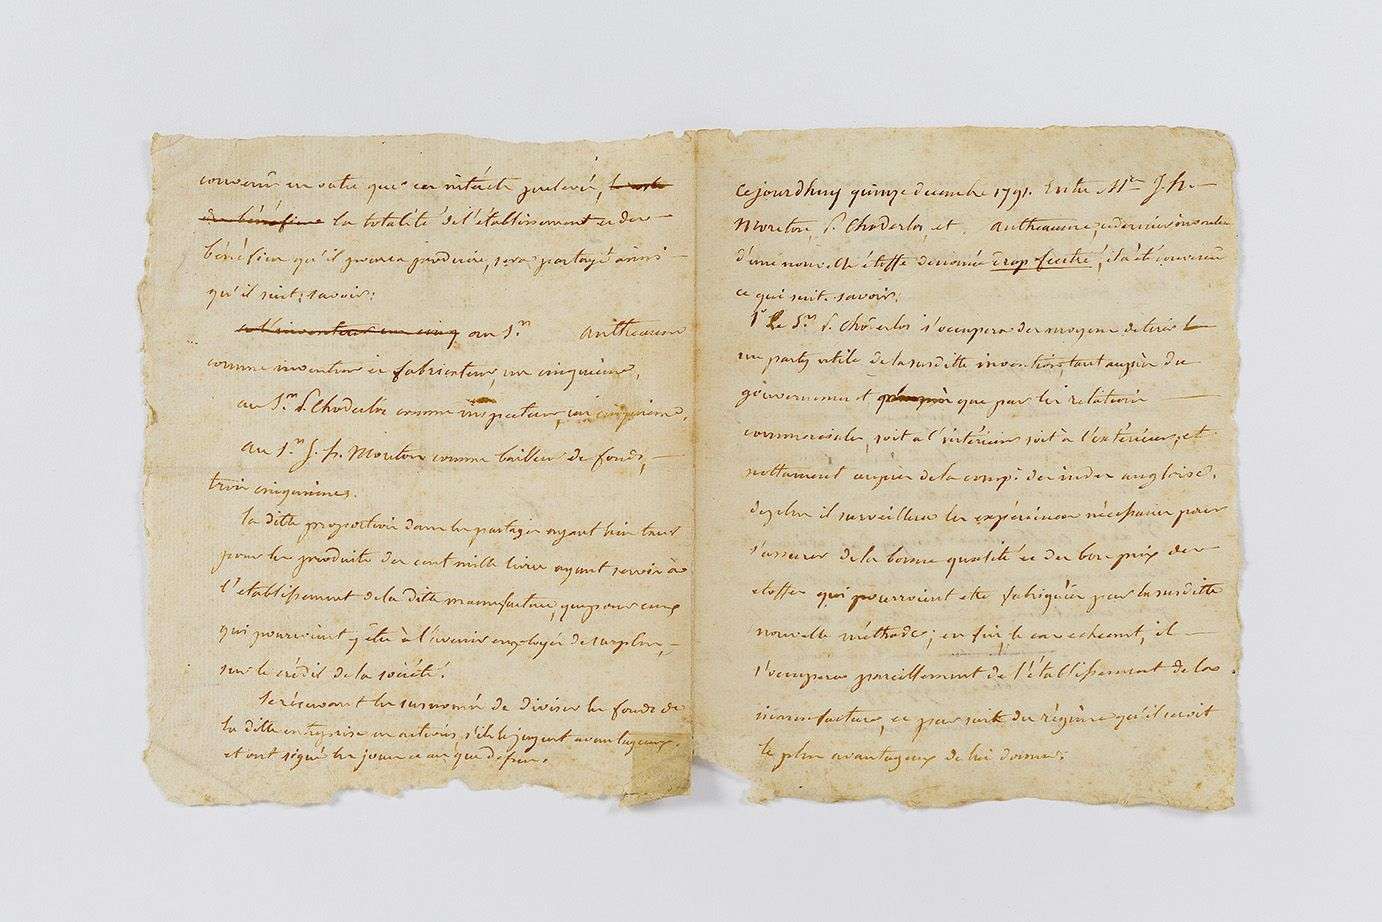 convenu en outre que ces intérêts prelevés, le reste
des bénéfices la totalité de l'établissement et des
bénéfices qu'il pourra produire, sera partagé ainsi
qu'il suit, savoir:
au Sr. Antheaume
comme inventeur et fabricateur, un cinquième,
au Sr. d. Choderlos comme inspecteur, un cinquième,
au Sr. J. h. Mouton comme bailleur de fonds,
trois cinquièmes.
la dite proportion dans les partages ayant lieu tant
pour les produits des cent mille livres ayant servis à
l'etablissement de la dite manufacture, que pour ceux
qui pourroient y être à l'avenir employés de surplus,
sur le crédit de la société.
Se réservant les susnomés de diviser les fonds de
la dite entreprise en actions, s'ils le jugent avantageux.
et ont signé les jour et an que dessus.
Cejourdhuy quinze decembre 1791. Entre Mrs. J. h.
Mouton, d. Choderlos, et Antheaume, ce dernier inventeur
d'une nouvelle étoffe denomée crap feutré, il a été convenu
ce qui suit. savoir:
1° Le Sr. d. Choderlos s'occupera des moyens de tirer
un party utile de la susditte invention, tant auprès du
gouvernement que par les relations
commerciales, soit à l'intérieur soit à l'extérieur, et
nottament auprès de la comp. des indes angloise.
de plus il surveillera les expériences nécessaires pour
s'assurer de la bonne qualité et du bon prix des
étoffes qui pourroient etre fabriquées par la susditte
nouvelle méthode; enfin, le cas echeant, il
s'occupera pareillement de l'établissement de la
manufacture, et par suite du régime qu'il seroit
le plus avantageux de lui donner.